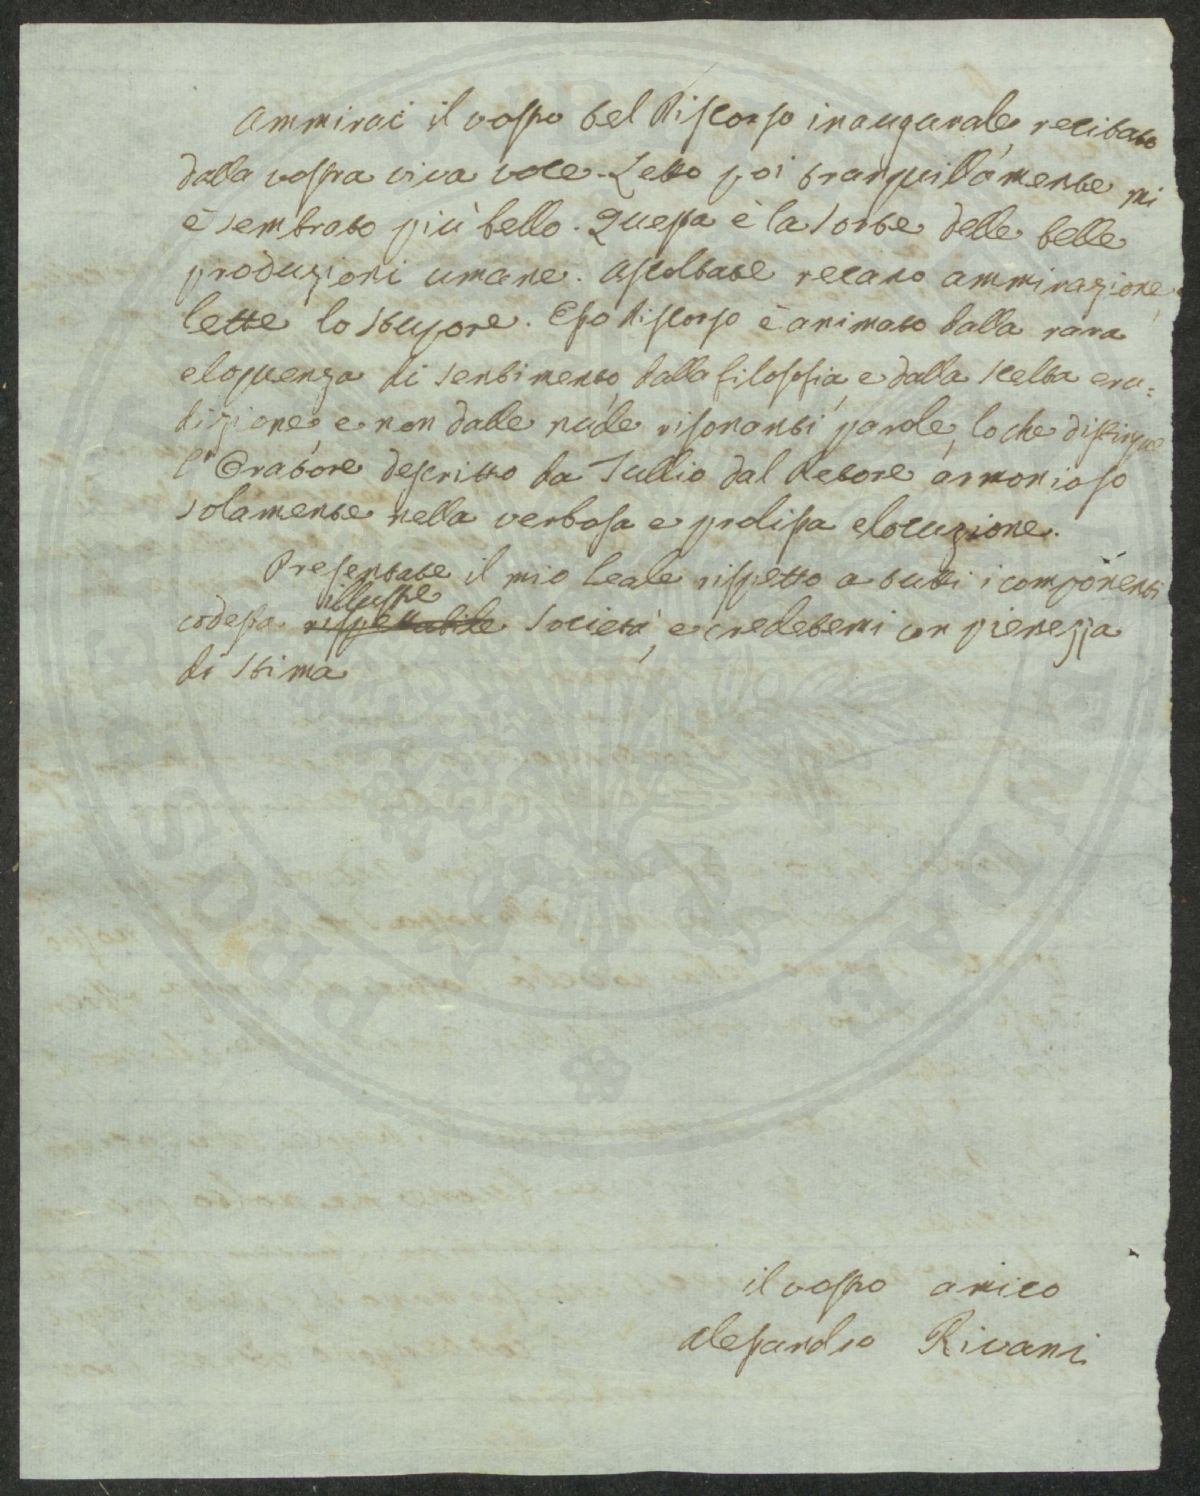 Ammirai il vostro bel Discorso inaugurale, recitato
dalla vostra viva voce. Letto poi tranquillamente mi
è sembrato più bello. Questa è la sorte delle belle
produzioni umane. Ascoltate recano ammirazione,
lette lo stupore. Esso Discorso è animato dalla rara
eloquenza di sentimento, dalla filosofia, e dalla scelta eru=
dizione, e non dalle nude risonanti parole, loche distingue
l'Oratore descritto da Tullio dal Retore armonioso
solamente nella verbosa e prolissa elocuzione.
Presentate il mio leale rispetto a tutti i componenti
illustre
codesta rispettabile Società, e credetemi con pienezza
di stima
il vostro amico
Alessandro Rivani